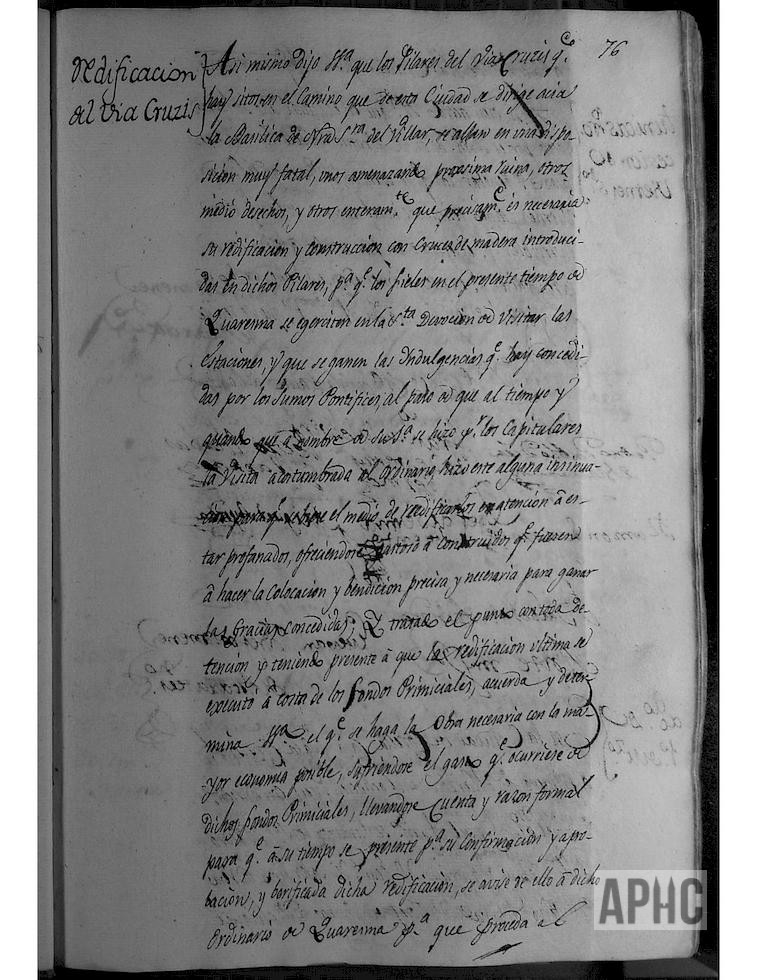 76
Redificacion
del Via Cruzis
Asi mismo Dijo SSª que los Pilares del Via Cruzis qe.
hay sitos en el Camino que de esta Ciudad se dirige acia
la Basilica de Nra Sra. del Villar, se allan en una dispo-
sicion muy fatal, unos amenazando proxsima ruina, otros
medio desechos, y otros enteramte. que precisamte. es necesaria
su redificacion y construccion con Cruces de madera introduci-
das en dichos Pilares, pª qe. los fieles en el presente tiempo de
Quaresma se egerciten en la Sta. Devocion de Visitar las
Estaciones, y que se ganen las Yndulgencias qe. hay concedi-
das por los Sumos Pontifices, al paso de que al tiempo y
quando que a nombre de su Sª. se hizo pr. los Capitulares
la Visita acostumbrada al Ordinario, hizo este alguna insinua-
cion para qe. el medio de reedificarlos en atencion à es-
tar profanados, ofreciendose construidos qe. fuesen
à hacer la Colocacion y bendicion precisa y necesaria para ganar
las Gracias concedidas, Y tratado el punto con toda de-
tencion y teniendo presente à que la redificacion ultima se
executo à costa de los fondos Primiciales, acuerda y deter-
mina SSª. el qe. se haga la Obra necesaria con la ma-
yor economia posible, sufriendose el gasto qe. ocurriere de
dichos fondos Primiciales, llevandose Cuenta y razon formal
para qe. à su tiempo se presente pª. su Confirmacion y apro-
bacion, y berificada dicha redificacion, se avise de ello à dicho
Ordinario de Quaresma pª. que proceda al
APHC